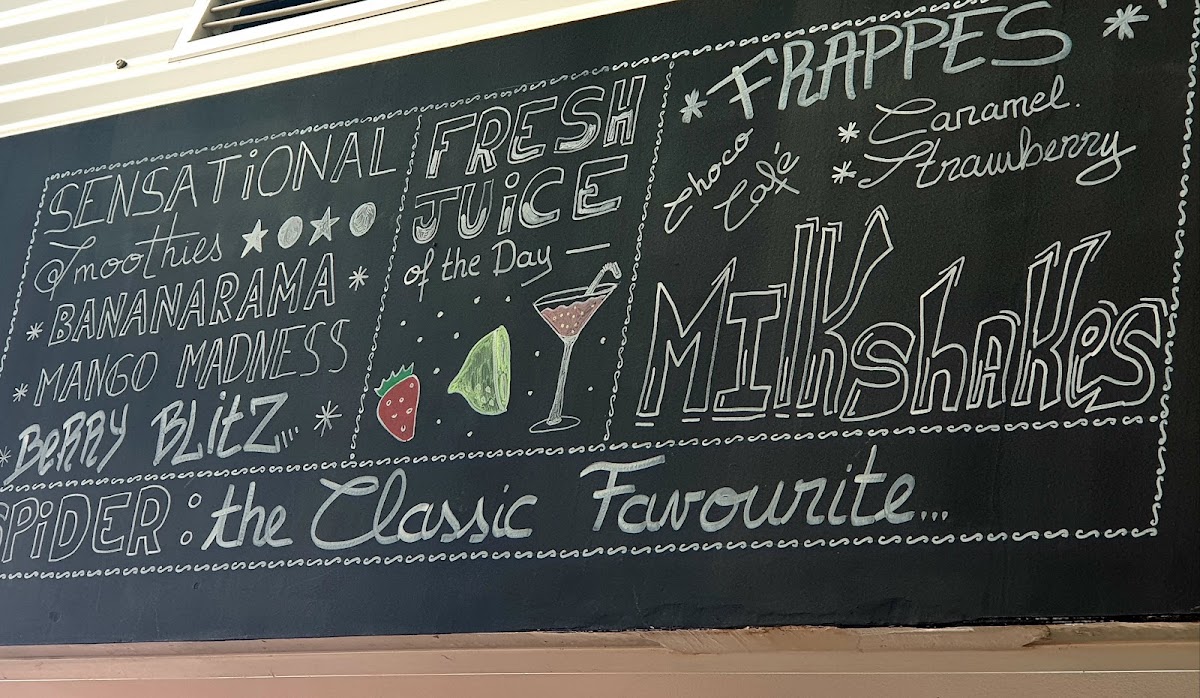 SENSATiONAL
Smoothies
BANANARAMA
MANGO MADNESS
BeRRY BLitZ...
FRESH
JUiCE
of the Day —
FRAPPES
Choco
Café
Caramel.
Strawberry
MILKshAKes
SPiDER : the Classic Favourite...